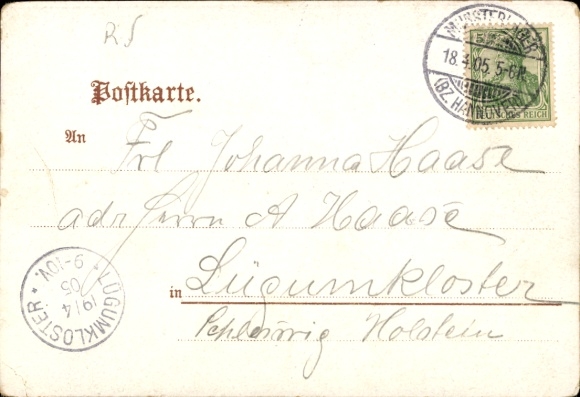 R S
MUNSTERLAGER
18.4.05. 5-6 N.
(BZ. HANNOVER)
5
REICH
Postkarte.
An
Frl Johanna Haase
adr Herrn A Haase
in Lügumkloster
Schleswig Holstein
LÜGUMKLOSTER
9-10V.
19 4
05